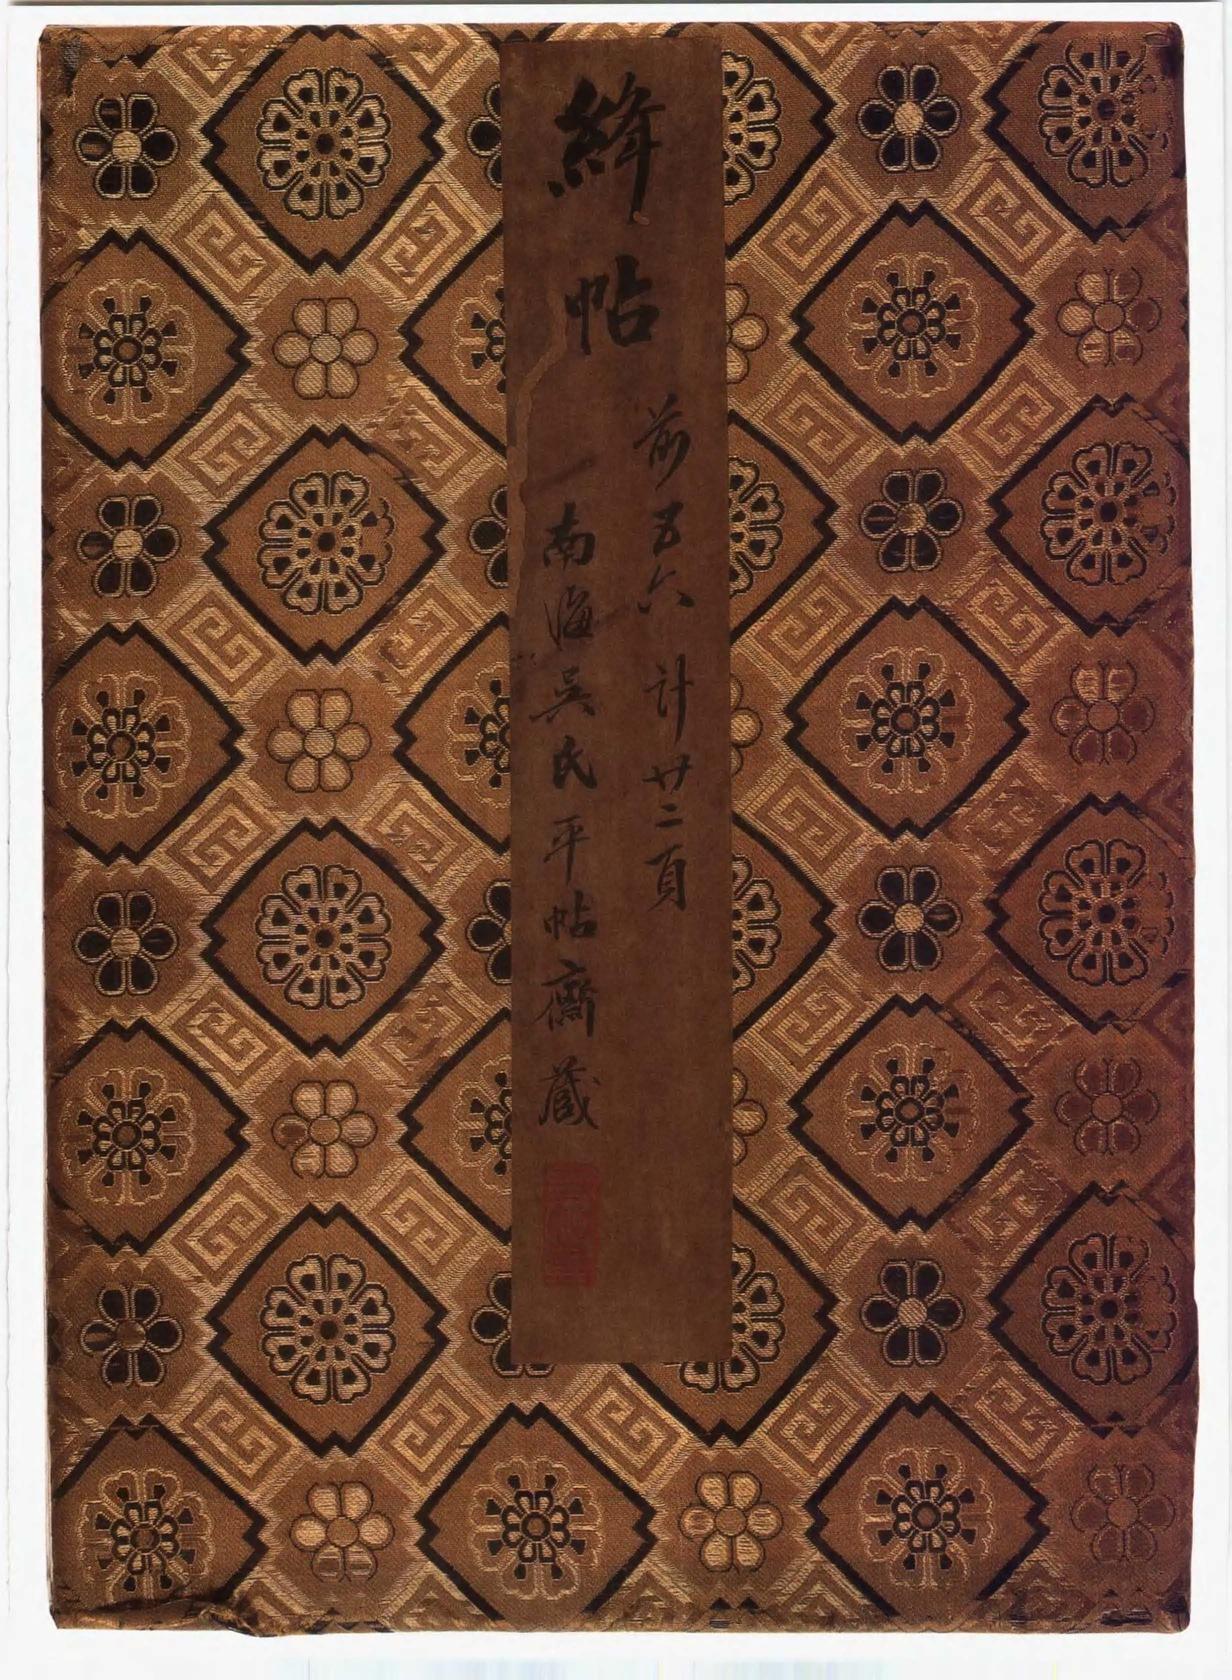 絳帖
前五六計廿二頁
南海吳氏平帖齋藏